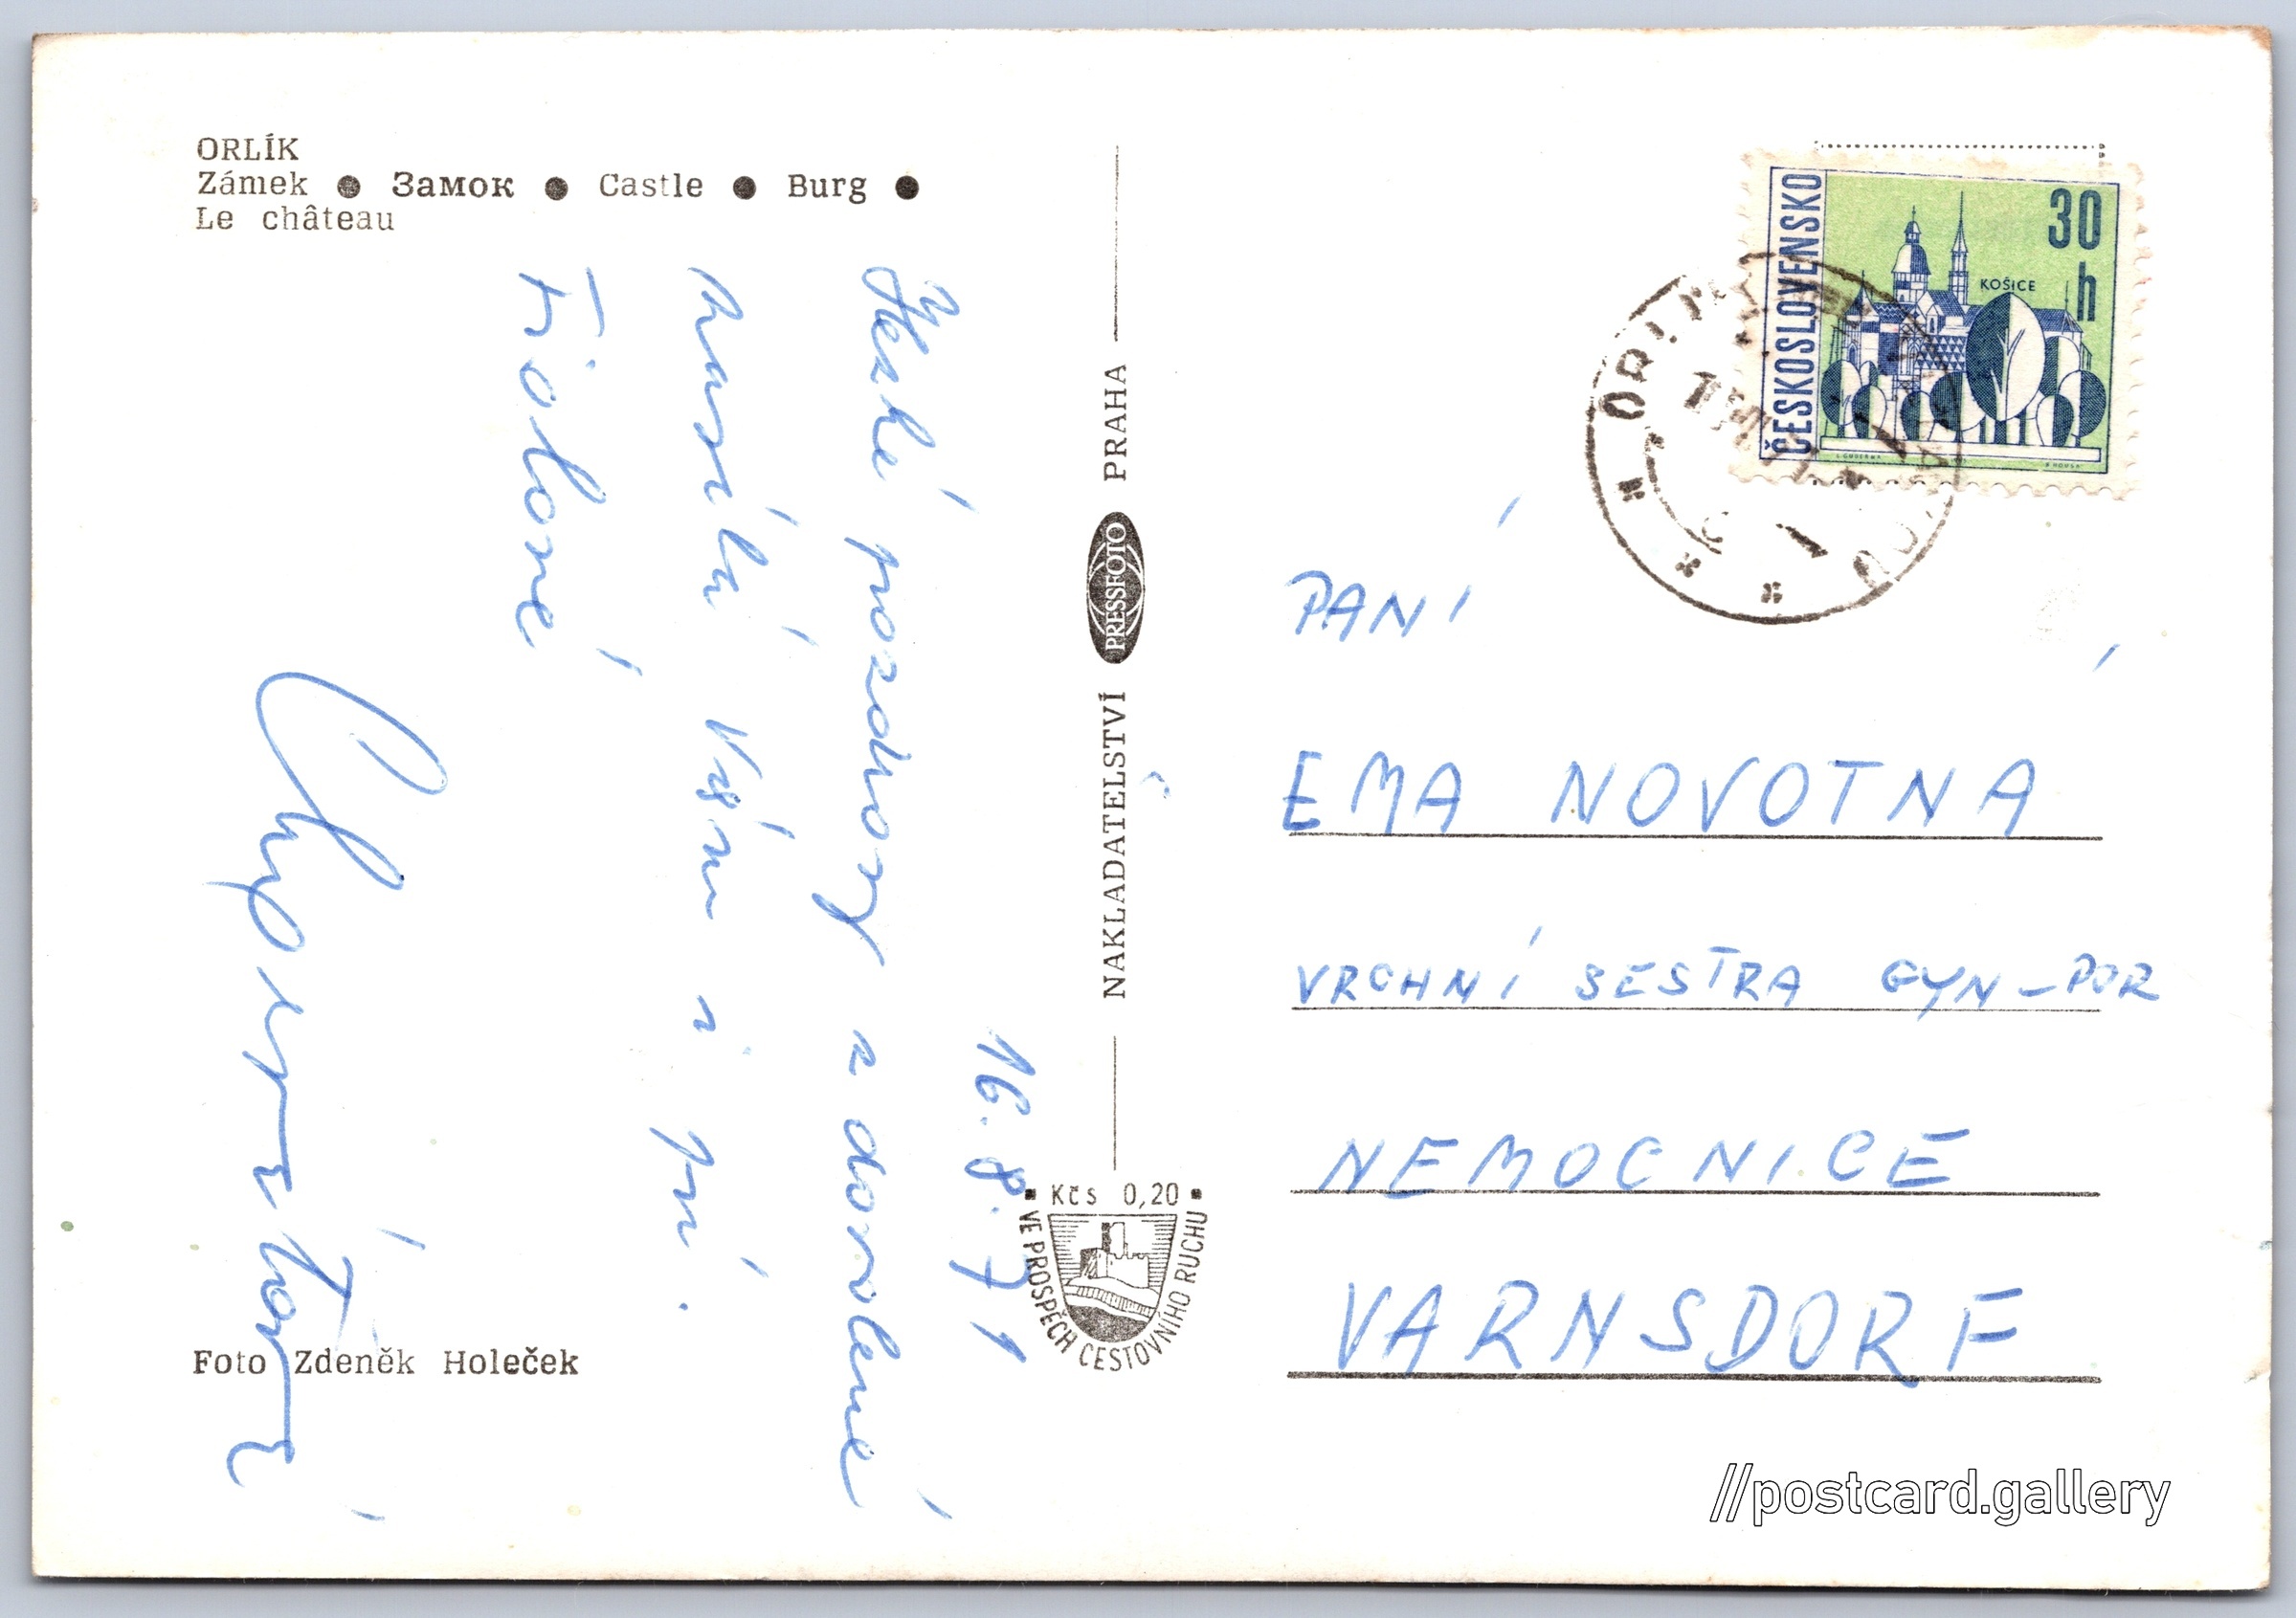 ORLÍK
Zámek ● Замок ● Castle ● Burg ●
Le château
16.8.71
Hezké pozdravy z dovolené
zasílá Vám i pí.
Foto Zdeněk Holeček
NAKLADATELSTVÍ PRESSFOTO PRAHA
Kčs 0,20
VE PROSPĚCH CESTOVNÍHO RUCHU
ČESKOSLOVENSKO
30 h
KOŠICE
PANÍ
EMA NOVOTNÁ
VRCHNÍ SESTRA GYN-POR
NEMOCNICE
VARNSDORF
//postcard.gallery